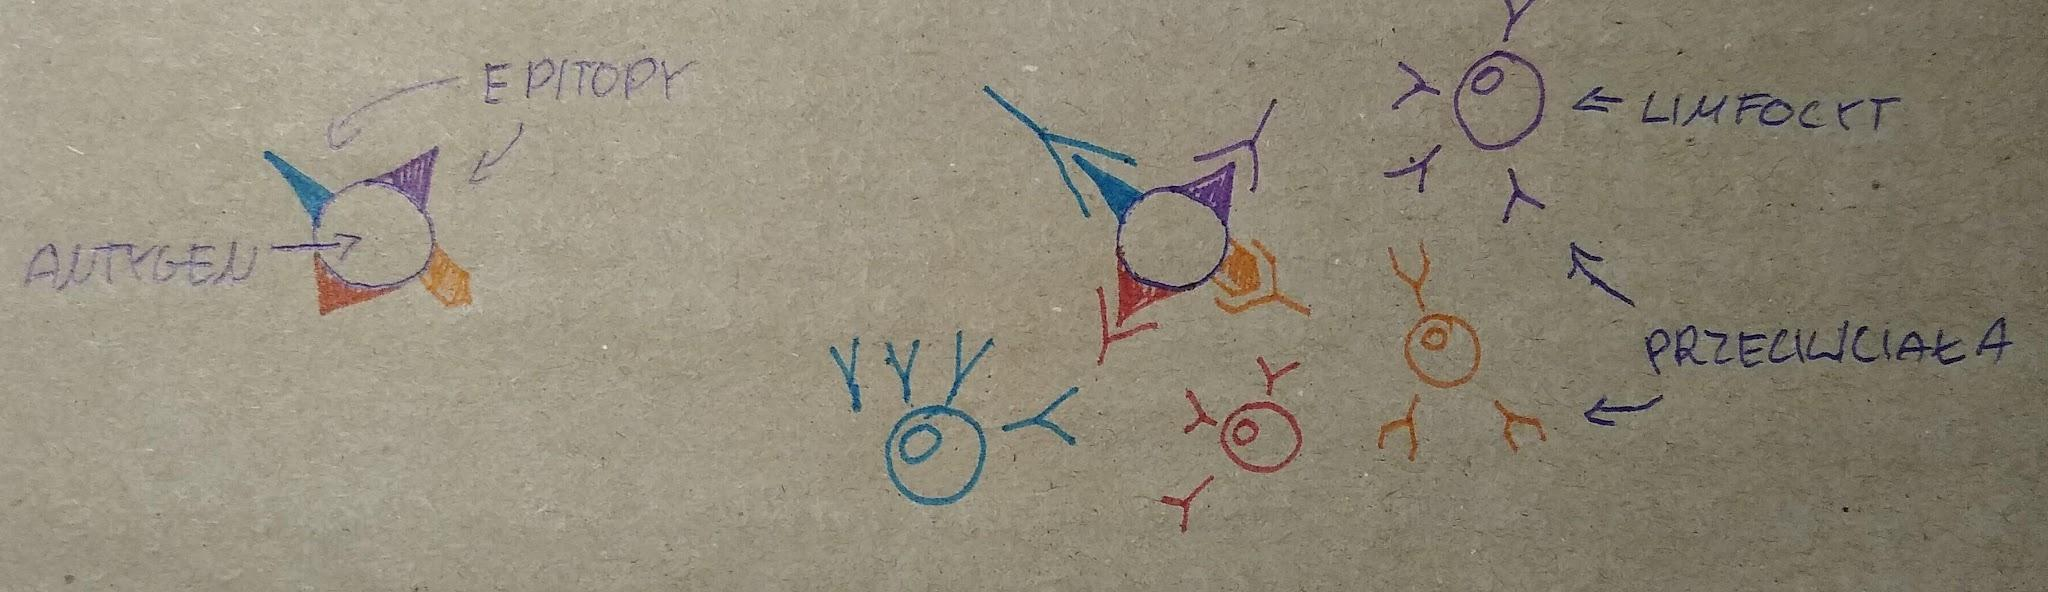 EPITOPY
ANTYGEN
LIMFOCYT
PRZECIWCIAŁA